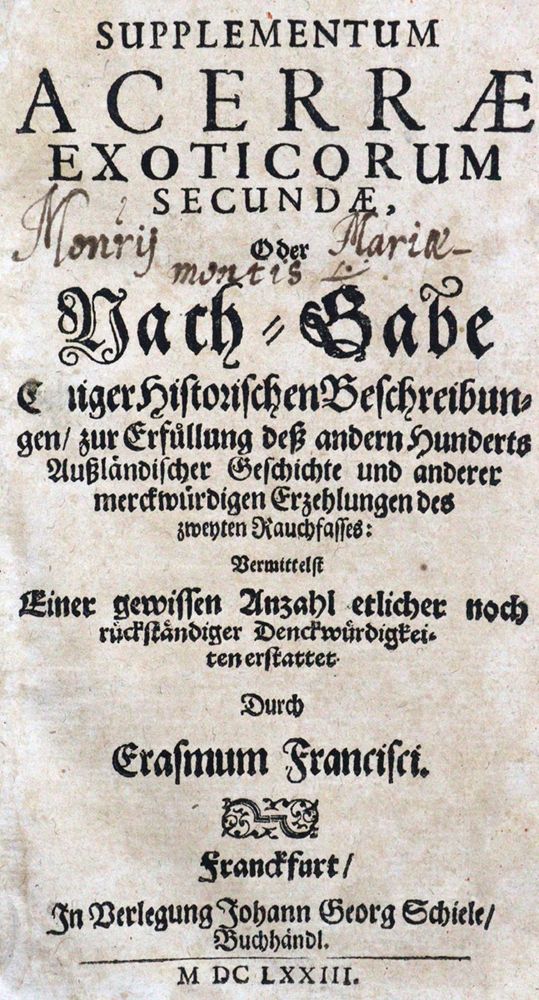 SUPPLEMENTUM
ACERRÆ
EXOTICORUM
SECUNDÆ,
Oder
Montis Mariæ
montis L.
Nach⸗Gabe
Einiger Historischen Beschreibun⸗
gen/ zur Erfüllung deß andern Hunderts
Außländischer Geschichte und anderer
merckwürdigen Erzehlungen des
zweyten Rauchfasses:
Vermittelst
Einer gewissen Anzahl etlicher noch
rückständiger Denckwürdigkei⸗
ten erstattet
Durch
Erasmum Francisci.
Franckfurt/
In Verlegung Johann Georg Schiele/
Buchhändl.
M DC LXXIII.